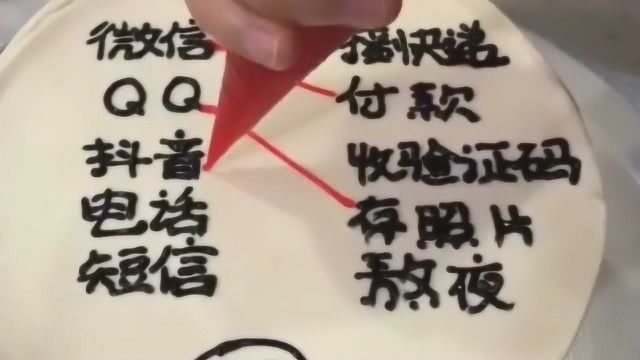 微信 快递
QQ 付款
抖音 收验证码
电话 存照片
短信 熬夜